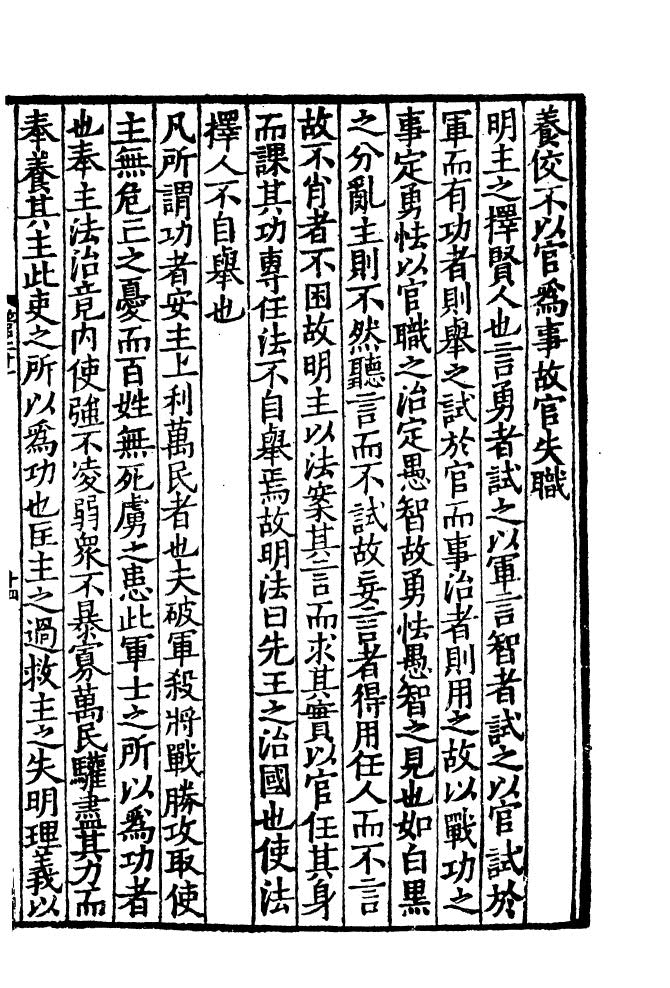 養佼不以官爲事故官失職
明主之擇賢人也言勇者試之以軍言智者試之以官試於
軍而有功者則舉之試於官而事治者則用之故以戰功之
事定勇怯以官職之治定愚智故勇怯愚智之見也如白黑
之分亂主則不然聽言而不試故妄言者得用任人而不言
故不肖者不困故明主以法案其言而求其實以官任其身
而課其功專任法不自舉焉故明法曰先王之治國也使法
擇人不自舉也
凡所謂功者安主上利萬民者也夫破軍殺將戰勝攻取使
主無危亡之憂而百姓無死虜之患此軍士之所以爲功者
也奉主法治竟内使強不凌弱衆不暴寡萬民驩盡其力而
奉養其主此吏之所以爲功也匡主之過救主之失明理義以
十四